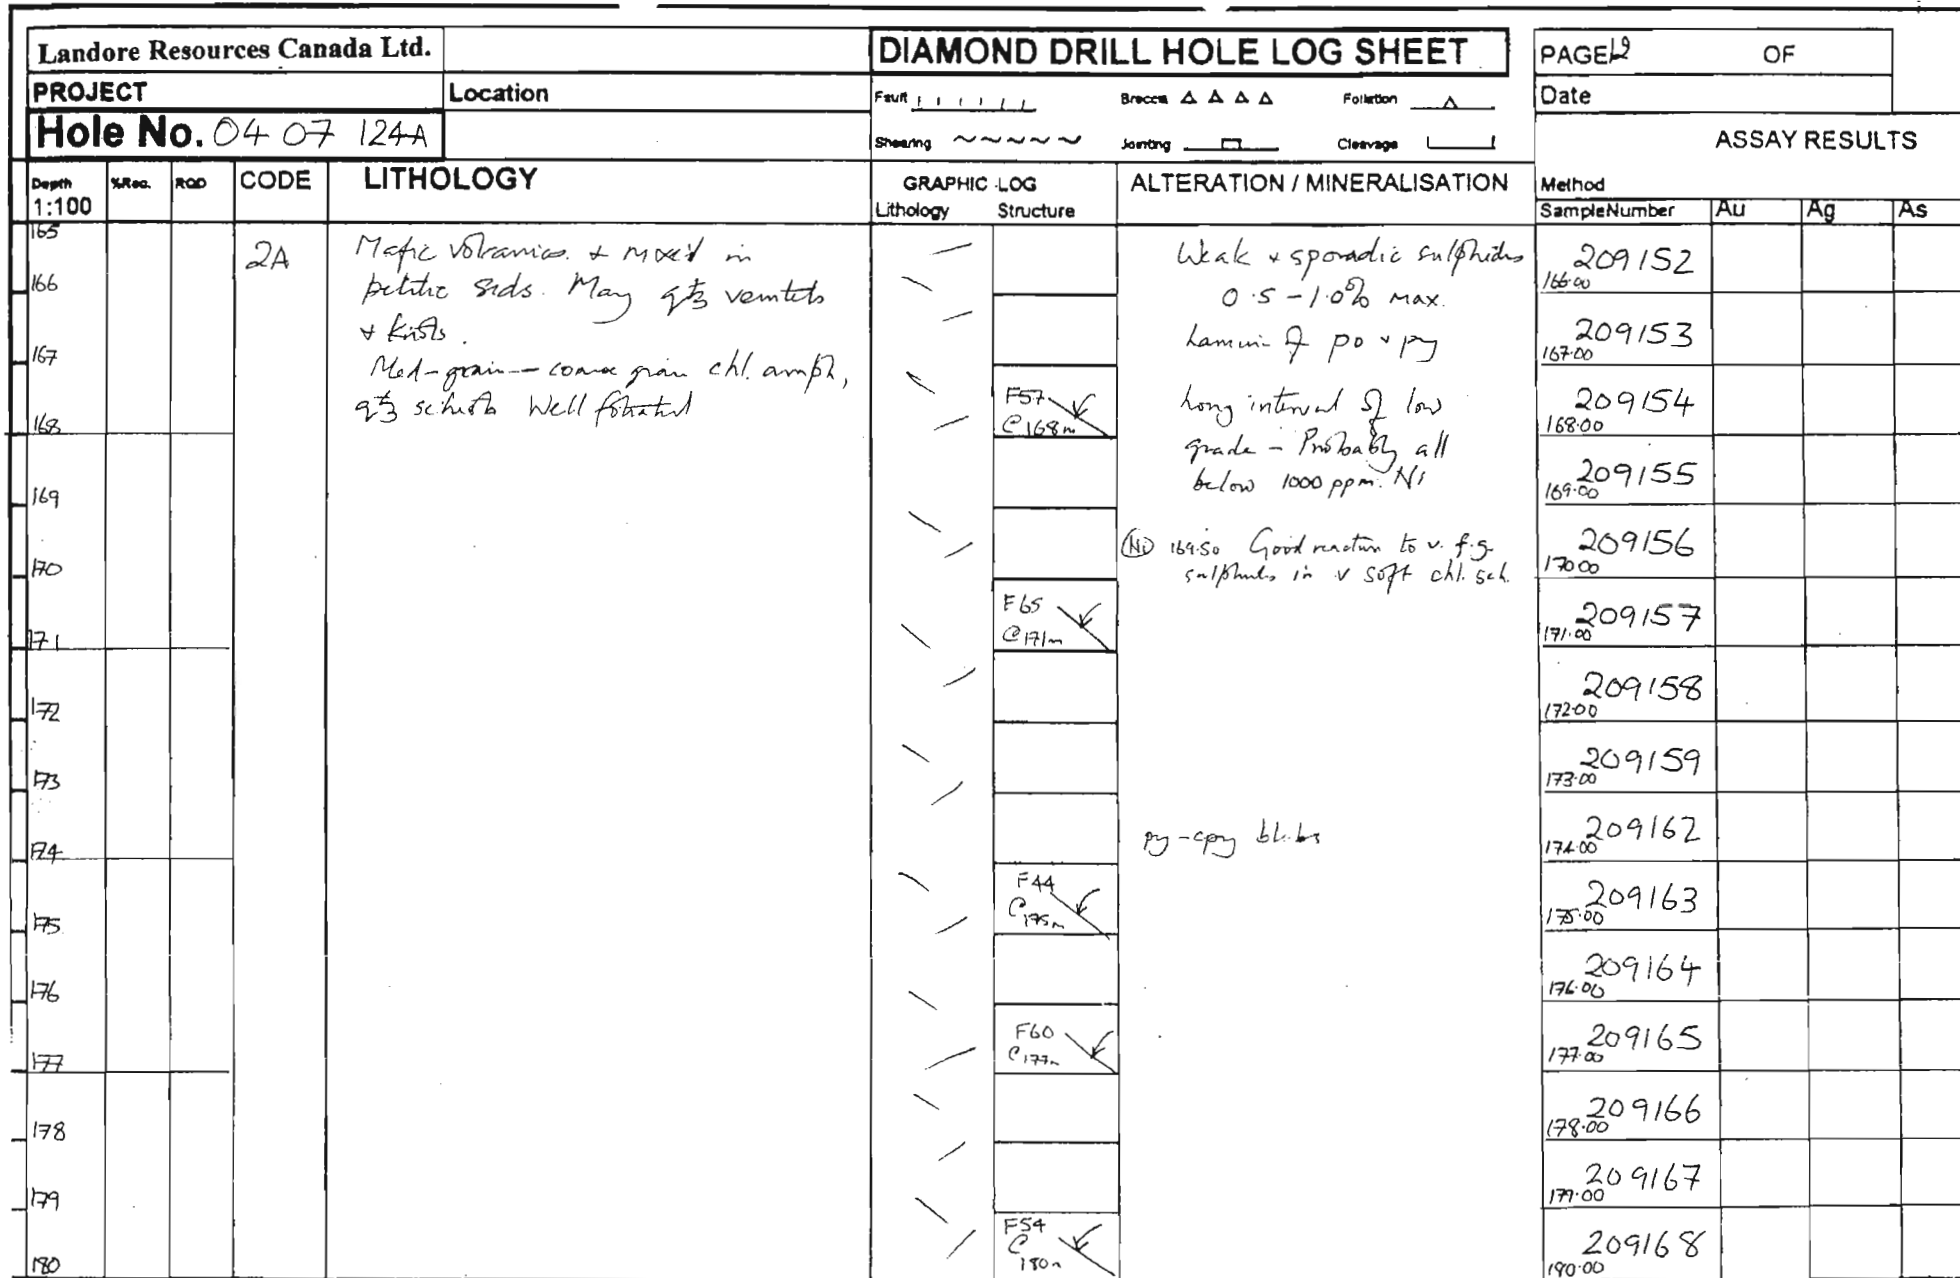 Landore Resources Canada Ltd.
DIAMOND DRILL HOLE LOG SHEET
PAGE OF
PROJECT
Location
Fault
Breccia
Foliation
Date
Hole No. 04 07 124A
Shearing
Jointing
Cleavage
ASSAY RESULTS
Depth
1:100
%Rec.
RQD
CODE
LITHOLOGY
GRAPHIC LOG
Lithology Structure
ALTERATION / MINERALISATION
Method
SampleNumber Au Ag As
165
166
167
168
169
170
171
172
173
174
175
176
177
178
179
180
2A
Mafic volcanics + mixed in
pelitic seds. May qtz veinlets
+ knots.
Med-grain - coarse grain chl. amph,
qtz schists Well foliated
F57
@ 168m
F65
@ 171m
F44
@ 175m
F60
@ 177m
F54
@ 180m
Weak + sporadic sulphides
0.5 - 1.0% max.
Lamin of po + py
Long interval of low
grade - Probably all
below 1000 ppm. Ni
(Ni) 169.50 Good reaction to v. f.g.
sulphides in v soft chl. sch.
py-cpy blebs
209152
166.00
209153
167.00
209154
168.00
209155
169.00
209156
170.00
209157
171.00
209158
172.00
209159
173.00
209162
174.00
209163
175.00
209164
176.00
209165
177.00
209166
178.00
209167
179.00
209168
180.00